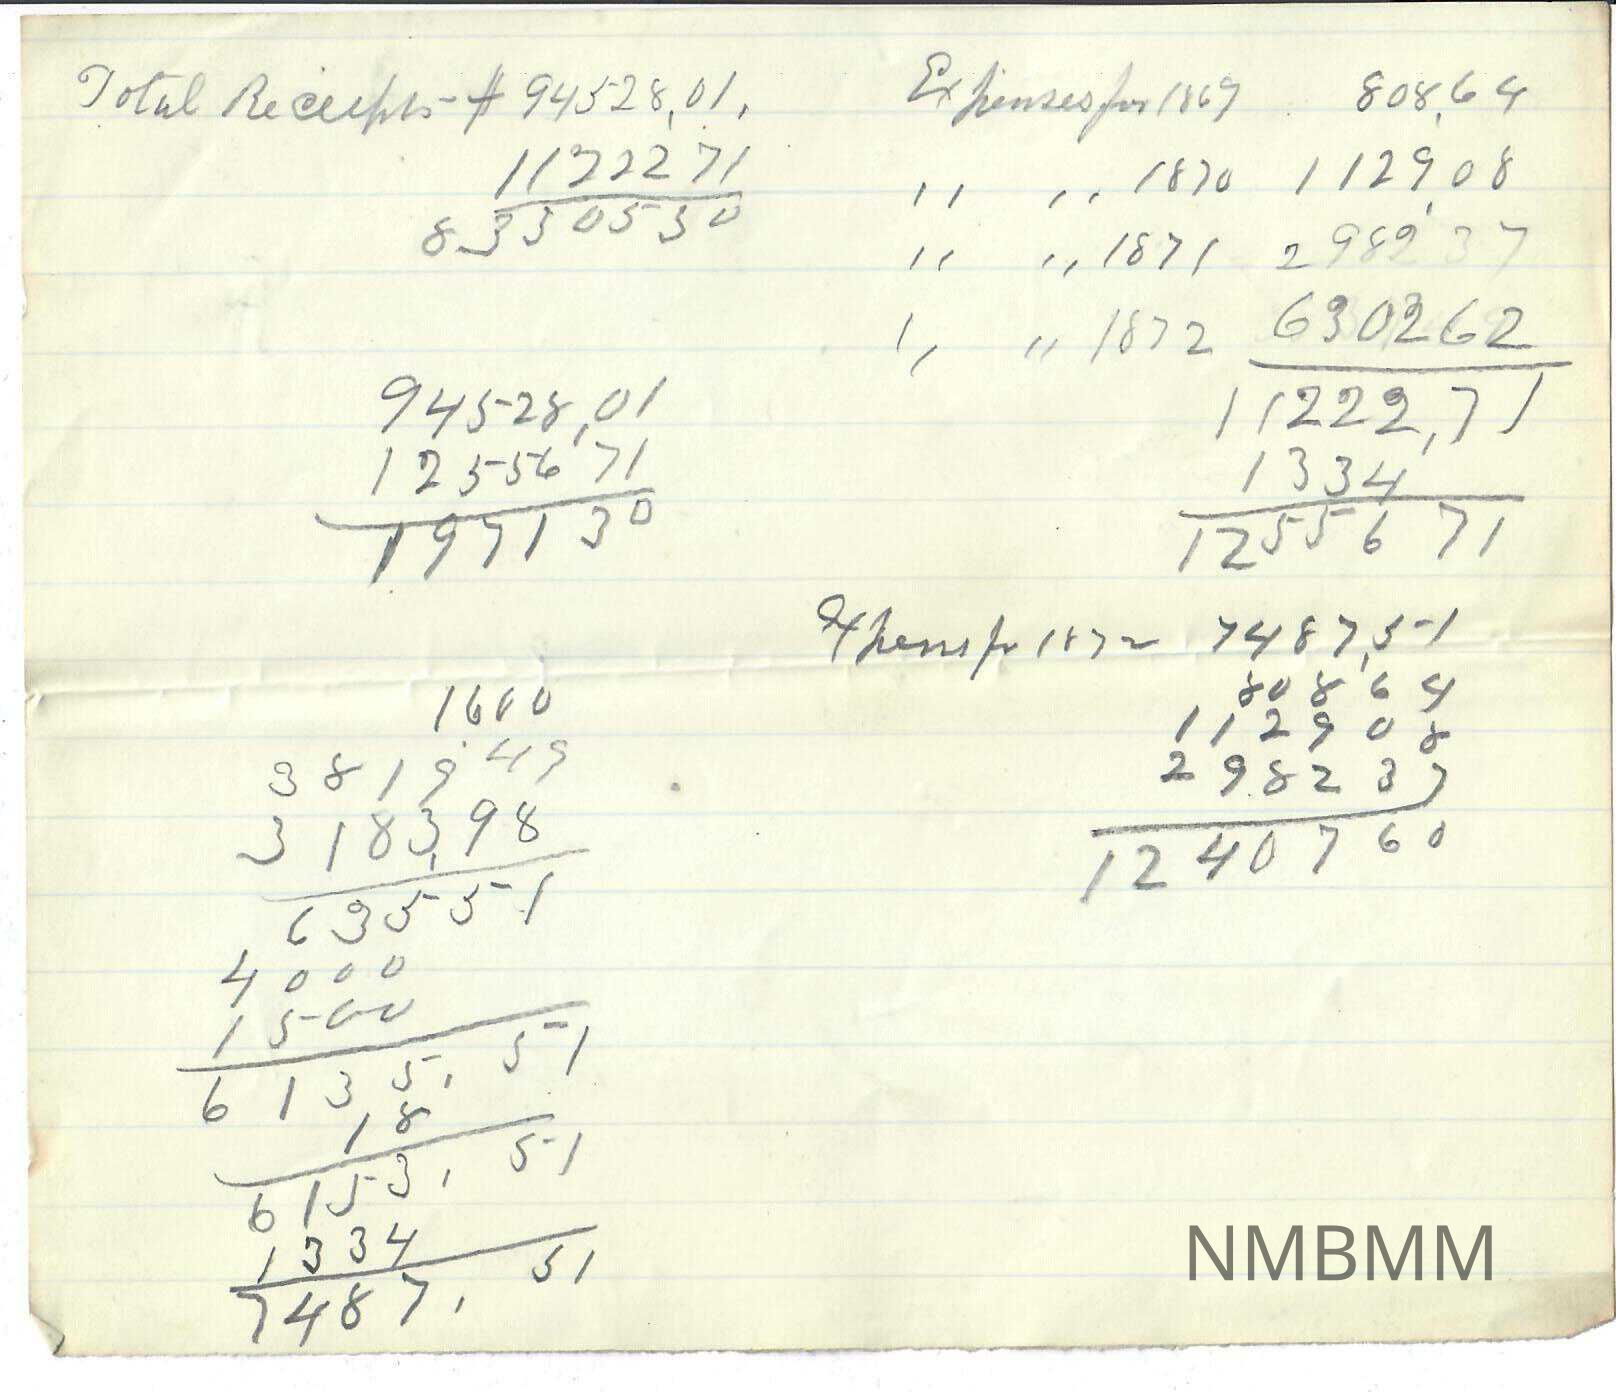 Total Receipts - $ 94528,01.
1122271
8330530
94528,01
1255671
197130
1600
381949
3183,98
63551
4000
1500
6135, 51
18
6153, 51
1334
7487, 51
Expenses for 1869 808,64
,, ,, 1870 1129,08
,, ,, 1871 298237
,, ,, 1872 630262
11222,71
1334
12556 71
Expens for 1872 7487,51
80864
112908
298237
1240760
NMBMM